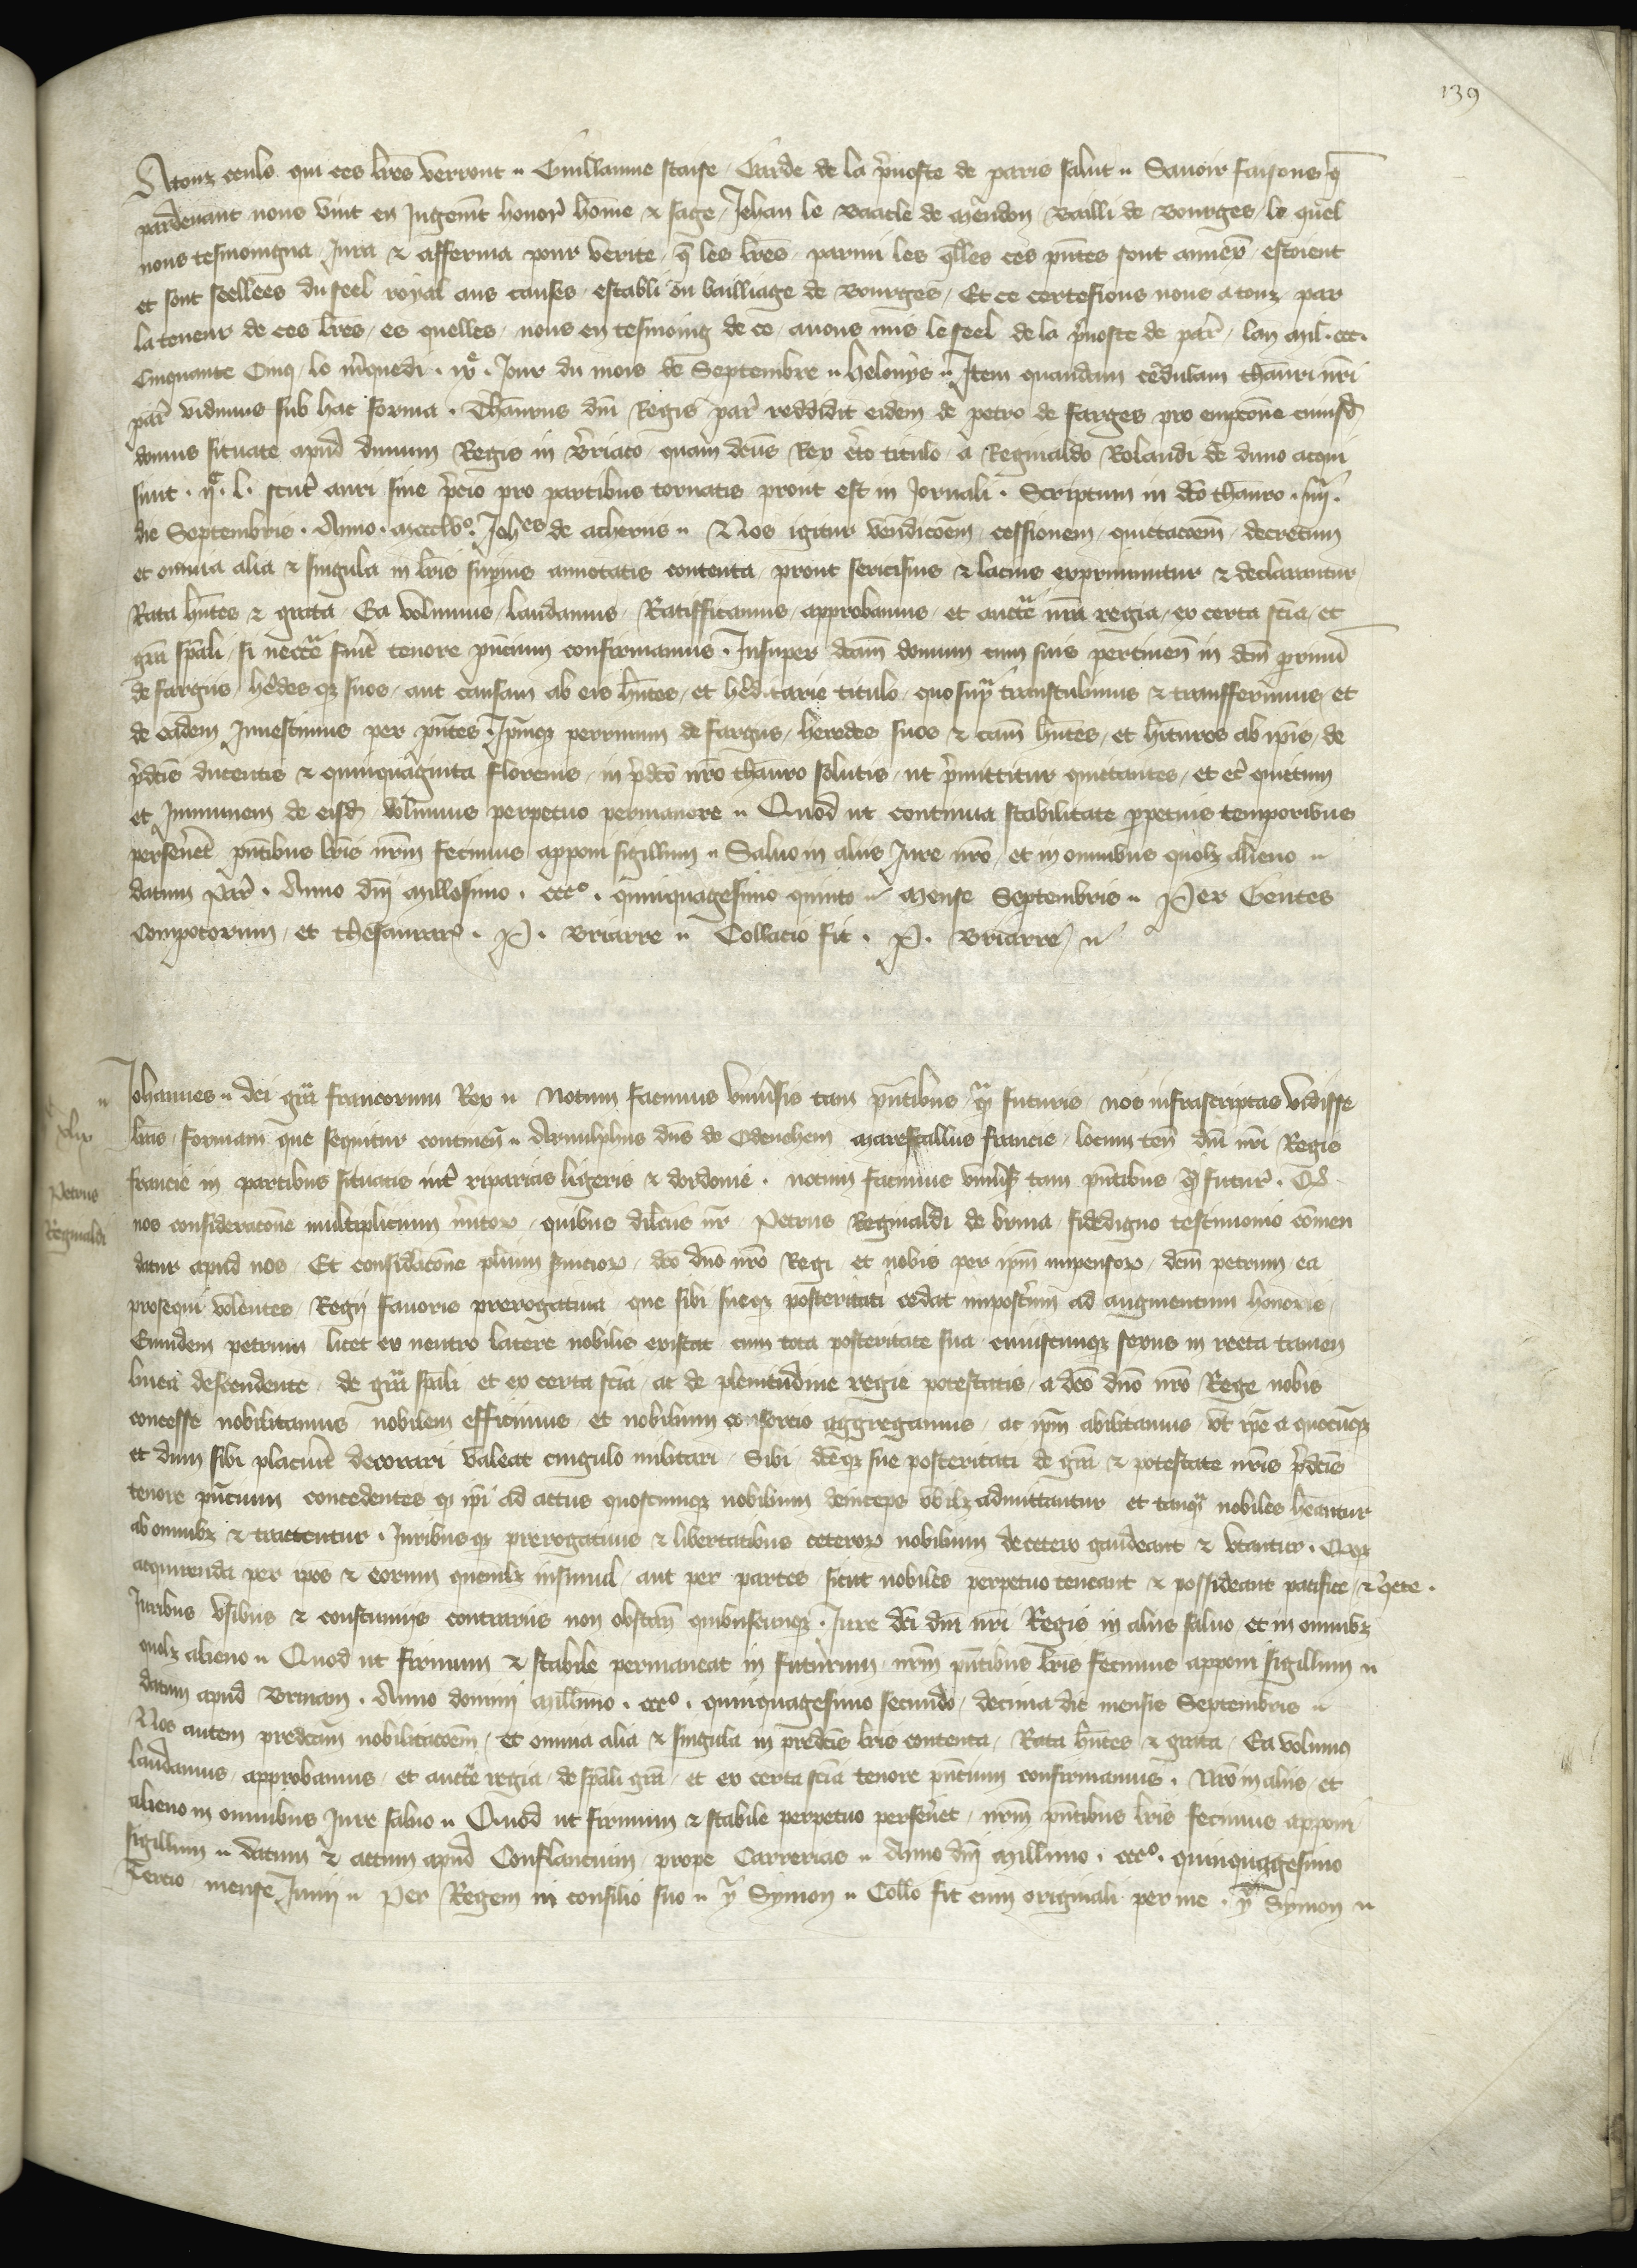 139
Atouz ceuls qui ces lres verront Guillaume Staise Garde de la pvoste de paris salut Savoir faisons q
pardevant nous vint en Jugemt honor home & sage Jehan le Baacle de meudon Bailli de Bourges le quel
nous tesmoingna Jura & afferma pour verite q les lres parmi les qlles ces pntes sont annex estoient
et sont seellees du seel royal aus causes establi ou bailliage de Bourges Et ce certefions nous atouz par
la teneur de ces lres es quelles nous en tesmoing de ce avons mis le seel de la pvoste de par lan mil ccc
Cinquante Cinq le mquedi Jour du mois de Septembre Item quandam cedulam thauri nri
par vidimus sub hac forma Thaurus dni Regis par reddidit eidem de petro de farges pro empcone cuiusd
domus situate apud dunum Regis in quam dcus Rex titulo a Reginaldo Rolandi de duno
sunt l scut auri sine pcio pro partibus tornatis prout est in Jornali Scriptum in dco thauro iiij
die Septembris Anno mccclvo Johes de acheriis Nos igitur vendicoem cessionem quictacoem decretum
et omnia alia & singula in lris supius annotatis contenta prout seriosius & lacius exprimuntur & declarantur
Rata hntes & grata Ea volumus laudamus Ratifficamus approbamus et aucte nra regia ex certa scia et
gra spali si necce fuit tenore pncium confirmamus Insuper dcam domum cum suis pertinen in dcm
de fargiis hedes q suos aut causam ab eis hntes et heditarie titulo quo sup transtulimus & transferimus et
de eadem Investimus per pntes Ipmq perrinum de fargiis heredes suos & cam hntes et hituros ab ipis de
pdcis ducentis & quinquaginta florenis in pdco nro thauro solutis ut pmittitur quittantes et quittum
et Immunem de eisd volumus perpetuo permanere Quod ut continua stabilitate ppetuis temporibus
persevet pntibus lris nrm fecimus apponi sigillum Salvo in aliis Jure nro et in omnibus quolz alieno
datum Par Anno dni millesimo ccco quinquagesimo quinto mense Septembris Per Gentes
Compotorum et thesaurar P Briarre Collacio fit P Briarre
Johannes dei gra francorum Rex Notum facimus universis tam pntibus q futuris nos infrascriptas vidisse
lras formam que sequitur continen Arnulphus dns de Odenehem marescallus francie locum ten dni nri Regis
francie in partibus situatis int riparias ligeris & dordonie notum facimus univs tam pntibus q futur Qd
Petrus
Reginaldi
nos consideracone multiplicium mitor quibus dilcus nr Petrus Reginaldi de briva fidedigno testimonio comen
datur apud nos Et considacone plium svicior dco dno nro Regi et nobis per ipm impensor dcm petrum ea
prosequi volentes Regij favoris prerogativa que sibi sueq posteritati cedat impostum ad augmentum honoris
Eundem petrum licet ex neutro latere nobilis existat cum tota posteritate sua cuiuscunq sexus in recta tamen
linea descendente de gra spali et ex certa scia ac de plenitudine regie potestatis a dco dno nro Rege nobis
concesse nobilitamus nobilem efficimus et nobilium consorcio aggregamus ac ipm abilitamus ut ipe a quocuq
et dum sibi placuit decorari valeat cingulo militari Sibi dceq sue posteritati de gra & potestate nris pdcis
tenore pncium concedentes q ipi ad actus quoscumq nobilium deinceps ubilz admittantur et tanq nobiles heantur
ab omnibz & tractentur Juribusq prerogativis & libertatibus ceteror nobilium decetero gaudeant & utantur
acquirenda per ipos & eorum quemlz insimul aut per partes sicut nobiles perpetuo teneant & possideant pacifice
Juribus usibus & constumijs contrariis non obstan quibuscunq Jure dci dni nri Regis in aliis salvo et in omnibz
quolz alieno Quod ut firmum & stabile permaneat in futurum nrm pntibus lris fecimus apponi sigillum
datum apud Brivam Anno domini millimo ccco quinquagesimo secundo decima die mensis Septembris
Nos autem predcam nobilitacoem et omnia alia & singula in predcis lris contenta Rata hntes & grata Ea volumus
laudamus approbamus et aucte regia de spali gra et ex certa scia tenore pncium confirmamus Nro in aliis et
alieno in omnibus Jure salvo Quod ut firmum & stabile perpetuo persevet nrm pntibus lris fecimus apponi
sigillum datum & actum apud Conflancium prope Carrerias Anno dni millimo ccco quinquagesimo
Tercio mense Junii Per Regem in consilio suo Y Symon Collo fit cum originali per me Y Symon